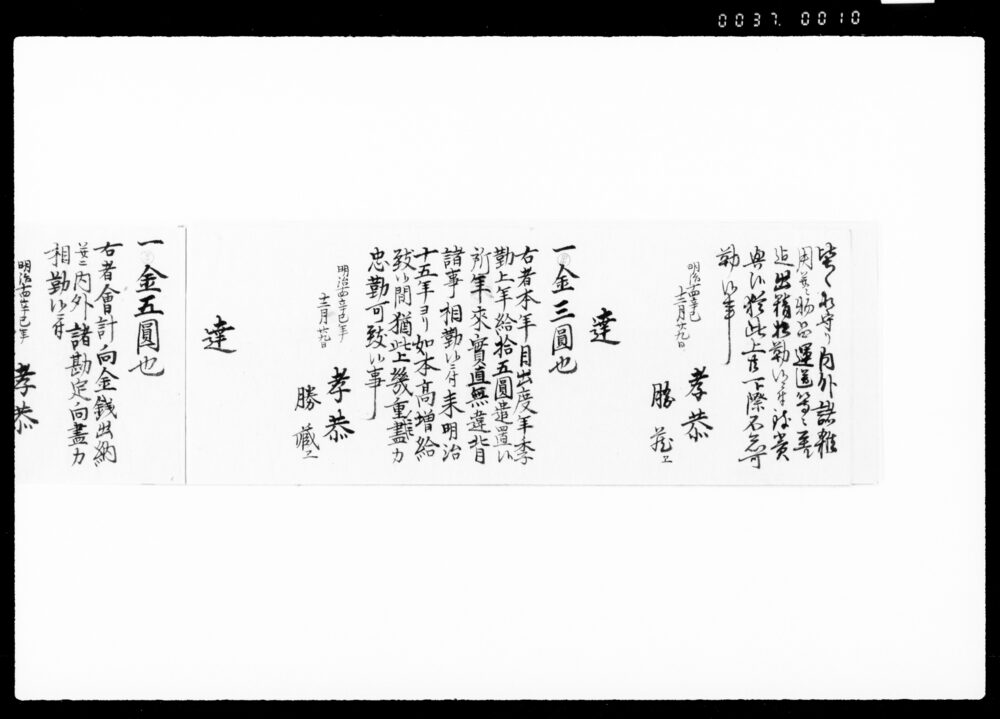 0037.0010
用并物品運送等ニ至
迄出精相勤候ニ付為賞
與候猶此上
勤候事
明治十四辛巳年
十二月廿九日
孝恭
勝蔵エ
達
一金三圓也
右者本年目出度年季
勤上年給拾五圓遣置候
所年来實直無違背
諸事相勤候ニ付来明治
十五年ヨリ如本高増給
致候間猶此上幾重ニモ盡力
忠勤可致候事
明治十四辛巳年
十二月廿九日
孝恭
勝蔵エ
達
一金五圓也
右者會計向金銭出納
并ニ内外諸勘定向盡力
相勤候ニ付
明治十四辛巳年
孝恭